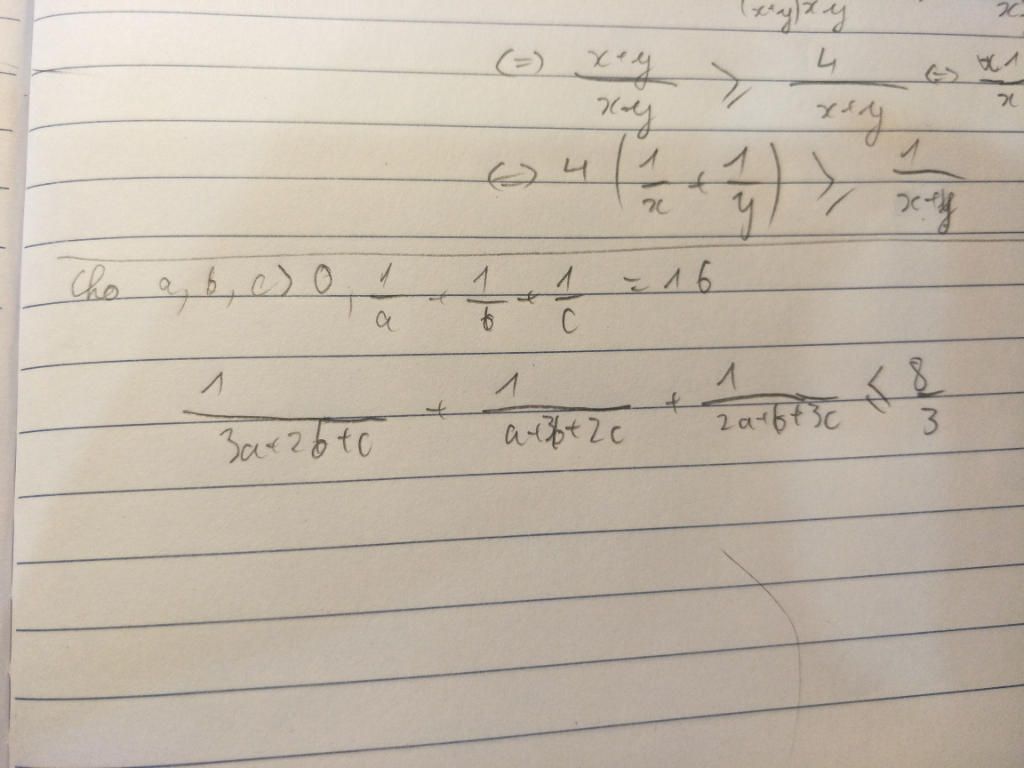 (x+y)xy
(=) x+y/x·y ⩾ 4/x+y (=) 1/x
(=) 4 (1/x + 1/y) ⩾ 1/x+y
Cho a, b, c > 0, 1/a + 1/b + 1/c = 16
1/3a+2b+c + 1/a+3b+2c + 1/2a+b+3c ⩽ 8/3